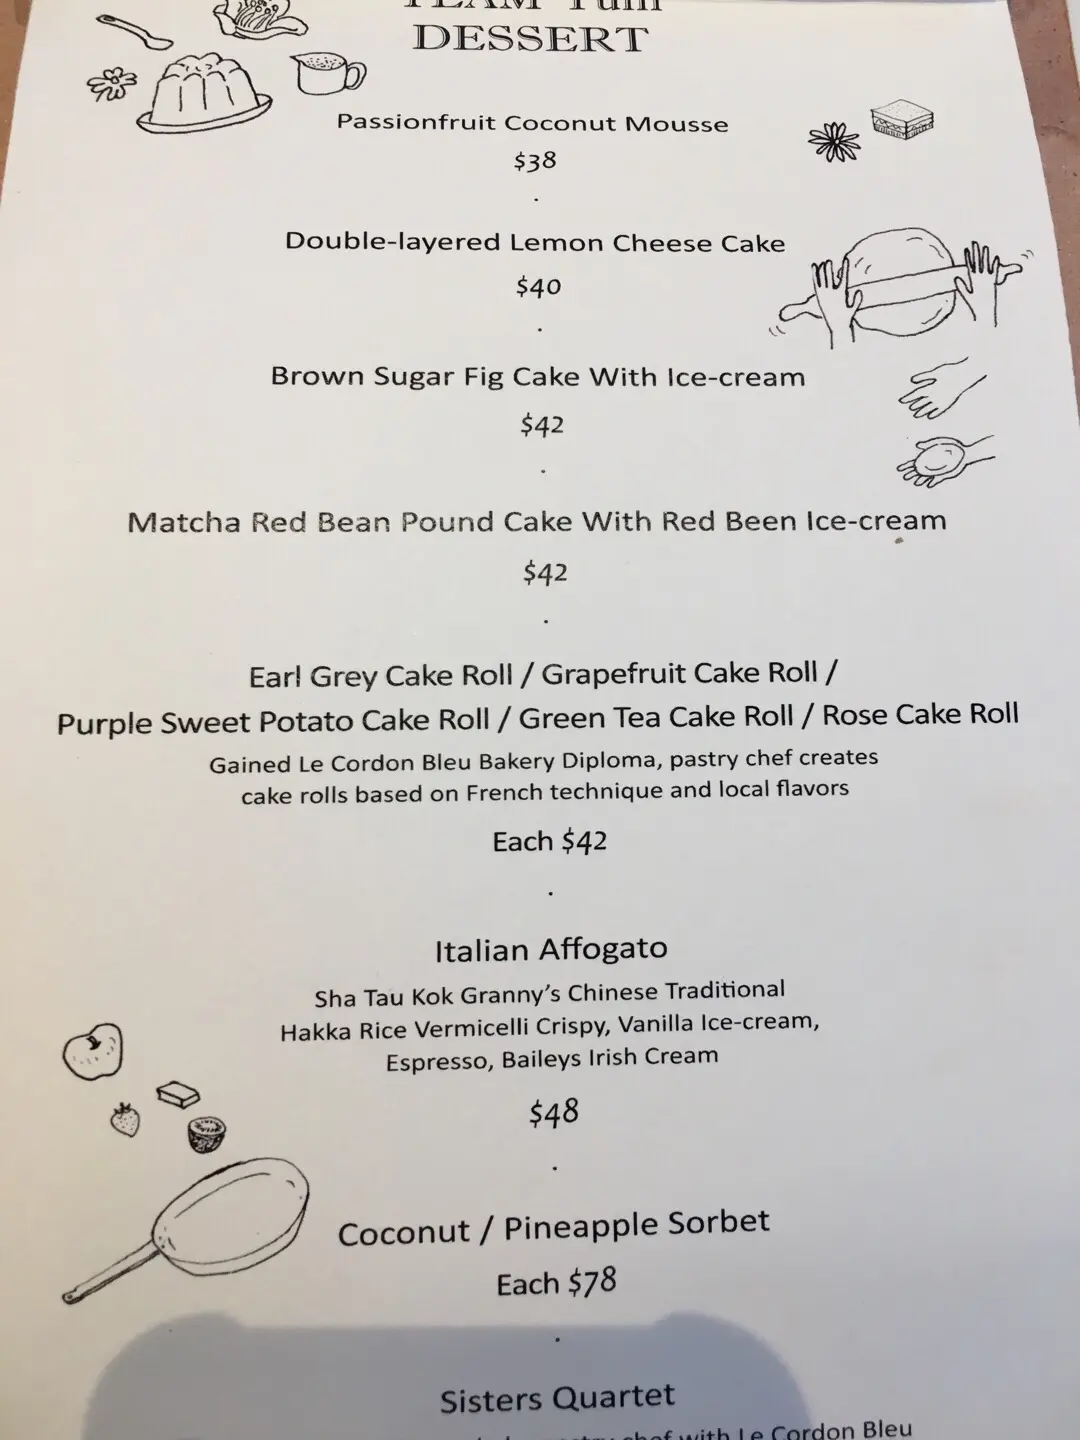 DESSERT
Passionfruit Coconut Mousse
$38
.
Double-layered Lemon Cheese Cake
$40
.
Brown Sugar Fig Cake With Ice-cream
$42
.
Matcha Red Bean Pound Cake With Red Been Ice-cream
$42
.
Earl Grey Cake Roll / Grapefruit Cake Roll /
Purple Sweet Potato Cake Roll / Green Tea Cake Roll / Rose Cake Roll
Gained Le Cordon Bleu Bakery Diploma, pastry chef creates
cake rolls based on French technique and local flavors
Each $42
.
Italian Affogato
Sha Tau Kok Granny's Chinese Traditional
Hakka Rice Vermicelli Crispy, Vanilla Ice-cream,
Espresso, Baileys Irish Cream
$48
.
Coconut / Pineapple Sorbet
Each $78
.
Sisters Quartet
chef with Le Cordon Bleu